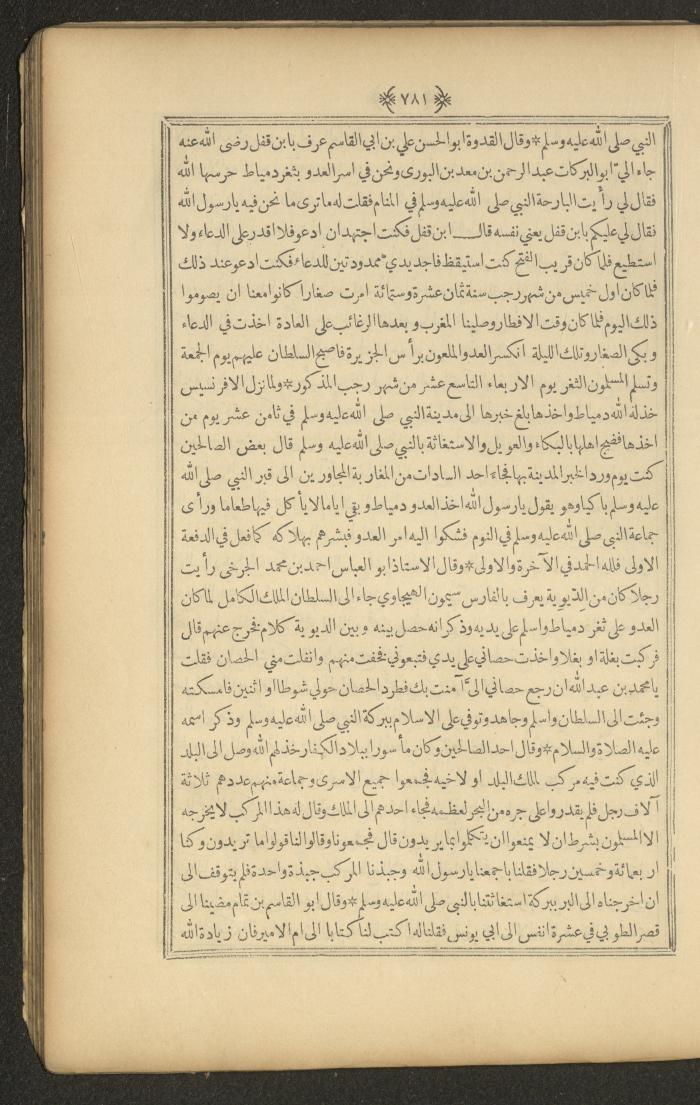 ﴿٧٨١﴾
النبي صلى الله عليه وسلم * وقال القدوة ابو الحسن علي بن ابي القاسم عرف بابن قفل رضى الله عنه
جاء اليّ ابو البركات عبد الرحمن بن معد بن البورى ونحن في اسر العدو بثغر دمياط حرسها الله
فقال لي رأيت البارحة النبي صلى الله عليه وسلم في المنام فقلت له ما ترى ما نحن فيه يا رسول الله
نقال لي عليكم بابن قفل يعني نفسه قال ابن قفل فكنت اجتهد ان ادعو فلا اقدر على الدعاء ولا
استطيع فلما كان قريب الفتح كنت استيقظ فاجد يدي ممدودتين للدعاء فكنت ادعو عند ذلك
فلما كان اول خميس من شهر رجب سنة ثمان عشرة وستمائة امرت صغارا كانوا معنا ان يصوموا
ذلك اليوم فلما كان وقت الافطار وصلينا المغرب و بعدها الرغائب على العادة اخذت في الدعاء
و بكى الصغار وتلك الليلة انكسر العدو الملعون برأس الجزيرة فاصبح السلطان عليهم يوم الجمعة
وتسلم المسلمون الثغر يوم الاربعاء التاسع عشر من شهر رجب المذكور * ولما نزل الافرنسيس
خذله الله دمياط واخذها بلغ خبرها الى مدينة النبي صلى الله عليه وسلم في ثامن عشر يوم من
اخذها فضج اهلها بالبكاء والعويل والاستغاثة بالنبي صلى الله عليه وسلم قال بعض الصالحين
كنت يوم ورد الخبر المدينة بها فجاء احد السادات من المغاربة المجاورين الى قبر النبي صلى الله
عليه وسلم باكيا وهو يقول يا رسول الله اخذ العدو دمياط و بقي اياما لا يأكل فيها طعاما ورأى
جماعة النبي صلى الله عليه وسلم في النوم فشكوا اليه امر العدو فبشرهم بهلاكه كما فعل في الدفعة
الاولى فلله الحمد في الآخرة والاولى * وقال الاستاذ ابو العباس احمد بن محمد الجرخى رأيت
رجلا كان من الديوية يعرف بالفارس سيمون الهيجاوي جاء الى السلطان الملك الكامل لما كان
العدو على ثغر دمياط واسلم على يديه وذكر انه حصل بينه و بين الديوية كلام فخرج عنهم قال
فركبت بغلة او بغلا واخذت حصاني على يدي فتبعوني فخفت منهم وانفلت مني الحصان فقلت
يا محمد بن عبد الله ان رجع حصاني اليّ آمنت بك فطرد الحصان حولي شوطا او اثنين فامسكته
وجئت الى السلطان واسلم وجاهد وتوفي على الاسلام ببركة النبي صلى الله عليه وسلم وذكر اسمه
عليه الصلاة والسلام * وقال احد الصالحين وكان مأسورا ببلاد الكفار خذلهم الله وصل الى البلد
الذي كنت فيه مركب لملك البلد او لاخيه فجمعوا جميع الاسرى وجماعة منهم عددهم ثلاثة
آلاف رجل فلم يقدروا على جره من البحر لعظمه فجاء احدهم الى الملك وقال له هذا المركب لا يخرجه
الا المسلمون بشرط ان لا يمنعوا ان يتكلموا بما يريدون قال فجمعونا وقالوا لنا قولوا ما تريدون وكنا
اربعمائة وخمسين رجلا فقلنا باجمعنا يا رسول الله وجبذنا المركب جبذة واحدة فلم يتوقف الى
ان اخرجناه الى البر ببركة استغاثتنا بالنبي صلى الله عليه وسلم * وقال ابو القاسم بن تمام مضينا الى
قصر الطوبي في عشرة انفس الى ابي يونس فقلنا له اكتب لنا كتابا الى ام الامير فان زيادة الله